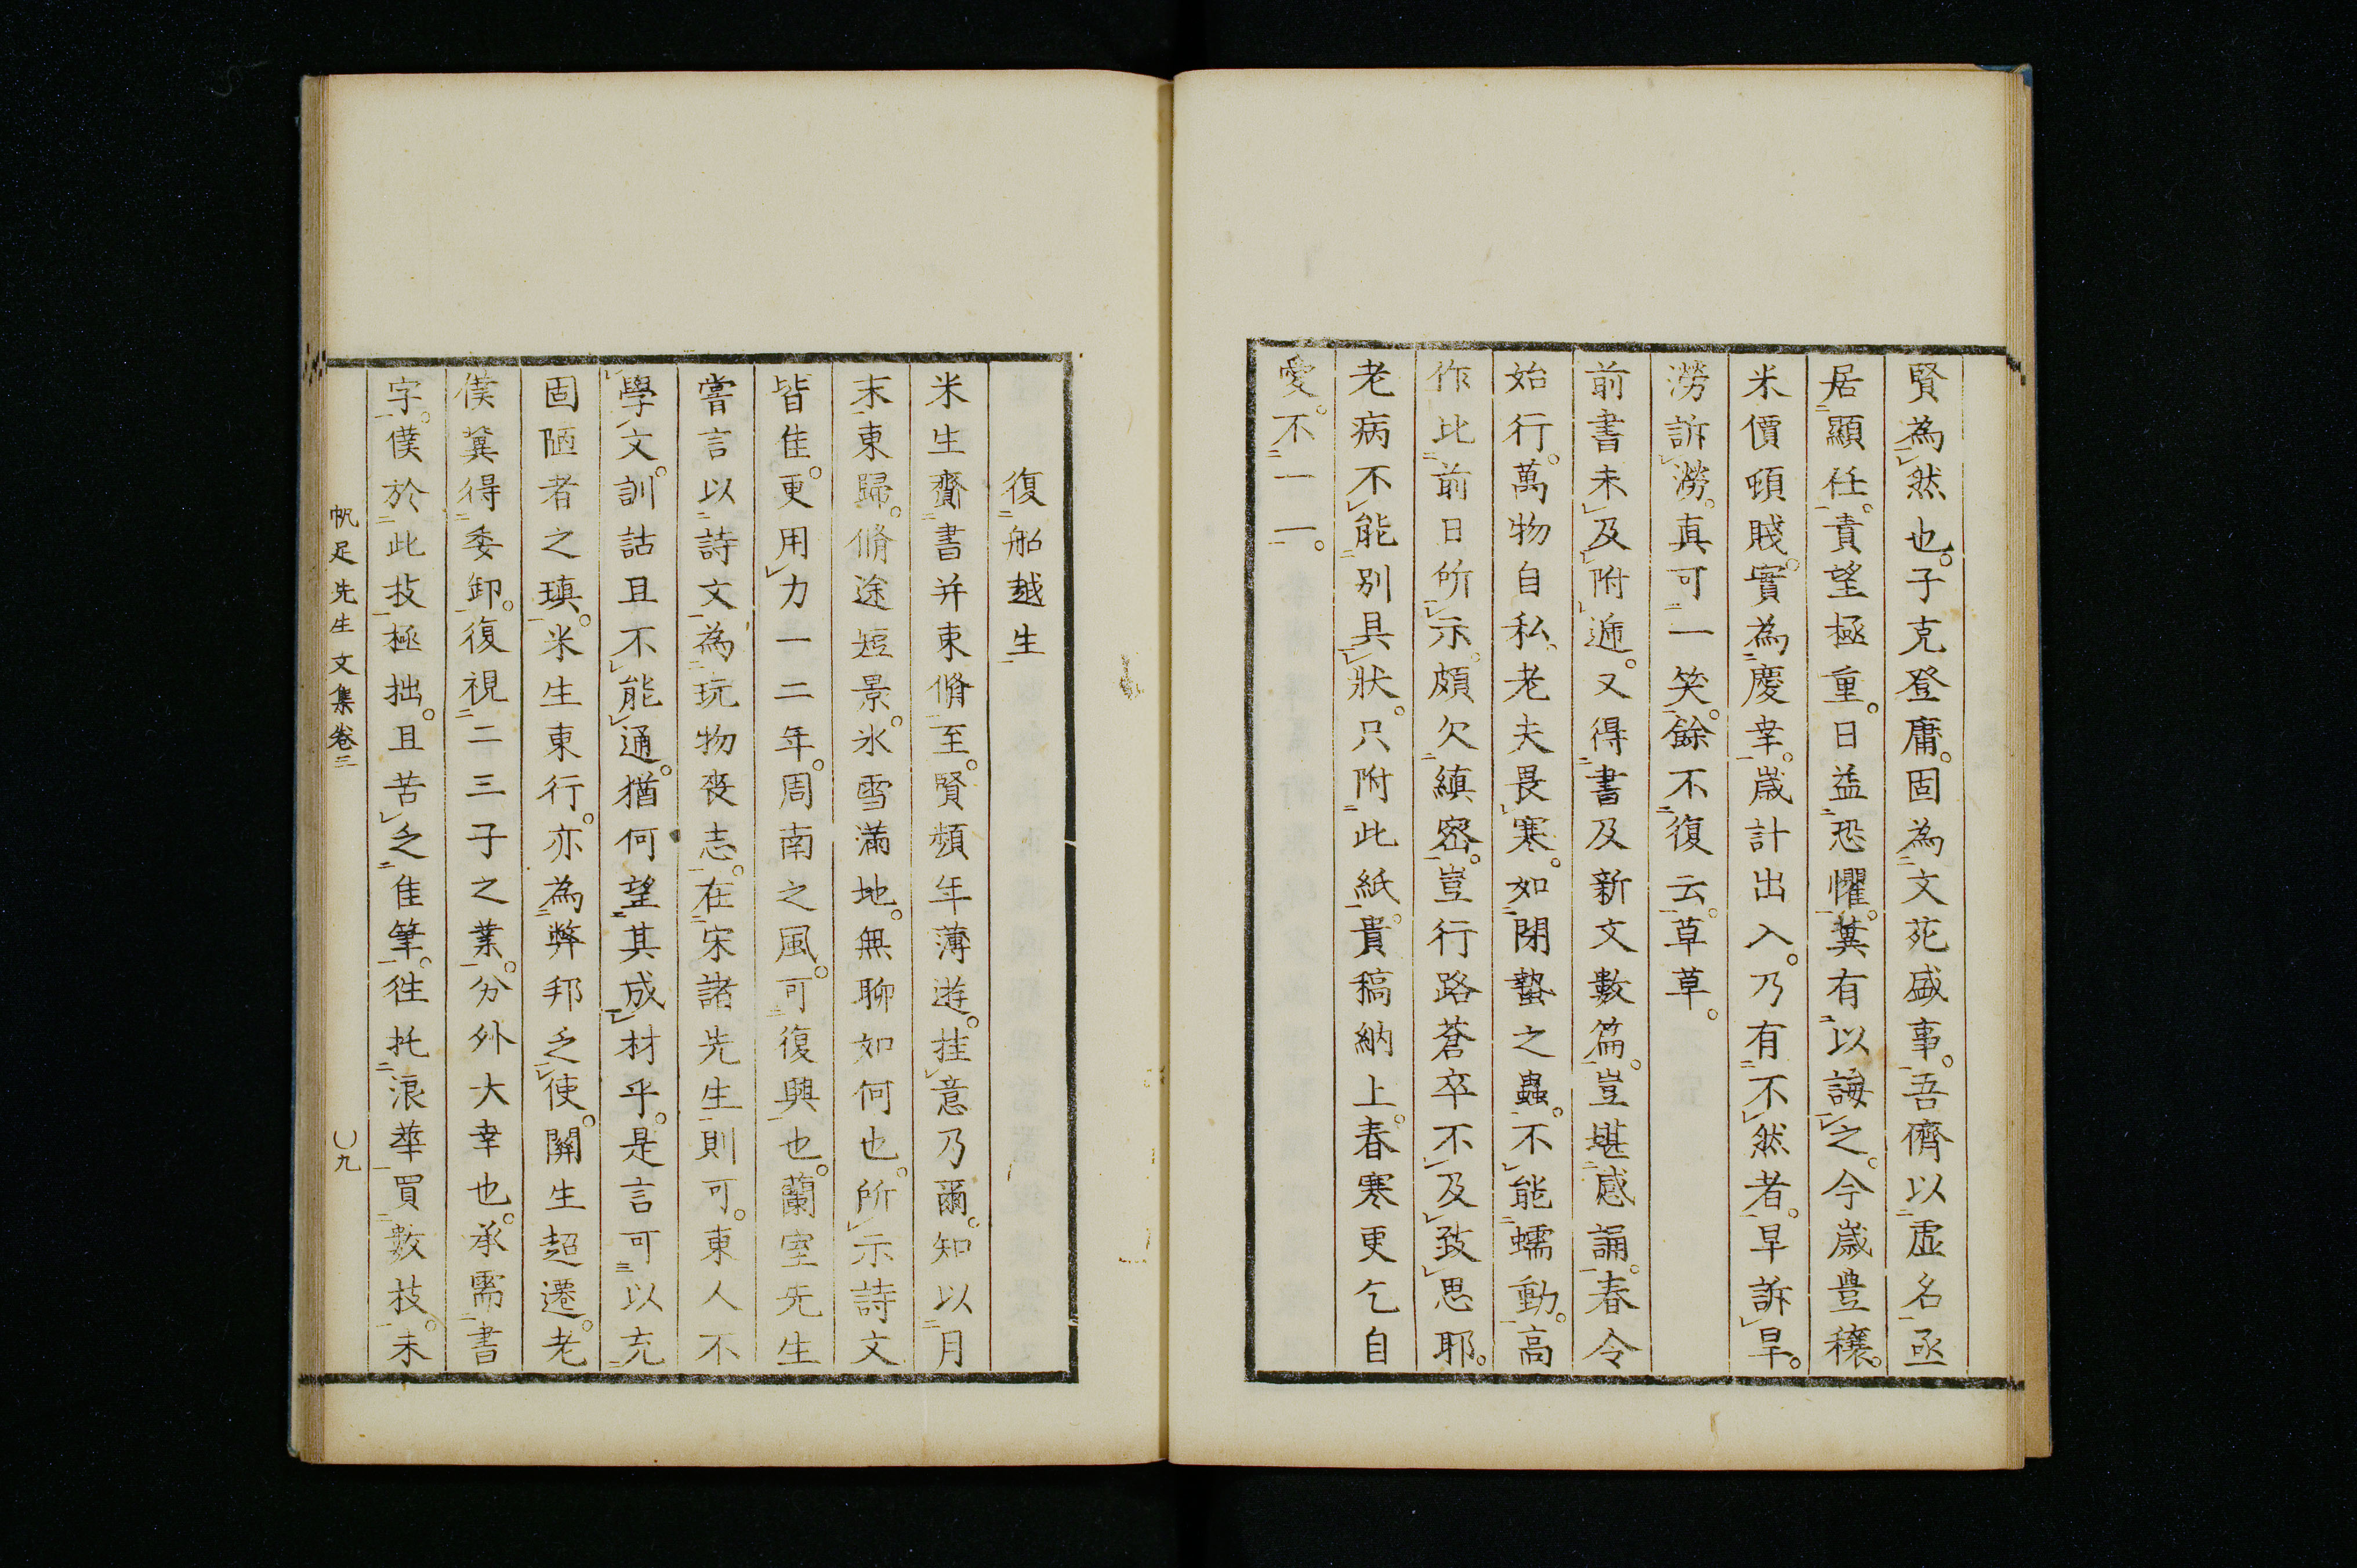 賢為然也。子克登庸。固為文苑盛事。吾儕以虛名亟
居顯任。責望極重。日益恐懼。冀有以誨之。今歲豊穰。
米價頓賤。實為慶幸。歲計出入。乃有不然者。旱訴旱。
澇訴澇。真可一笑。餘不復云。草草。
前書未及附遞。又得書及新文數篇。豈堪感誦。春令
始行。萬物自私、老夫畏寒。如閉蟄之蟲。不能蠕動。高
作比前日所示。頗欠縝密。豈行路蒼卒不及致思耶。
老病不能別具狀。只附此紙。貴稿納上。春寒更乞自
愛。不一一。
復船越生
米生齎書并束脩至。賢頻年薄遊。挂意乃爾。知以月
末東歸。脩途短景。氷雪滿地。無聊如何也。所示詩文
皆佳。更用力一二年。周南之風。可復興也。蘭室先生
嘗言以詩文為玩物喪志。在宋諸先生則可。東人不
學文。訓詁且不能通。猶何望其成材乎。是言可以充
固陋者之瑱。米生東行。亦為弊邦乏使。關生超遷。老
僕冀得委卸。復視二三子之業。分外大幸也。承需書
字。僕於此技極拙。且苦乏佳筆。徃托浪華買數枝。未
帆足先生文集卷二
〇九